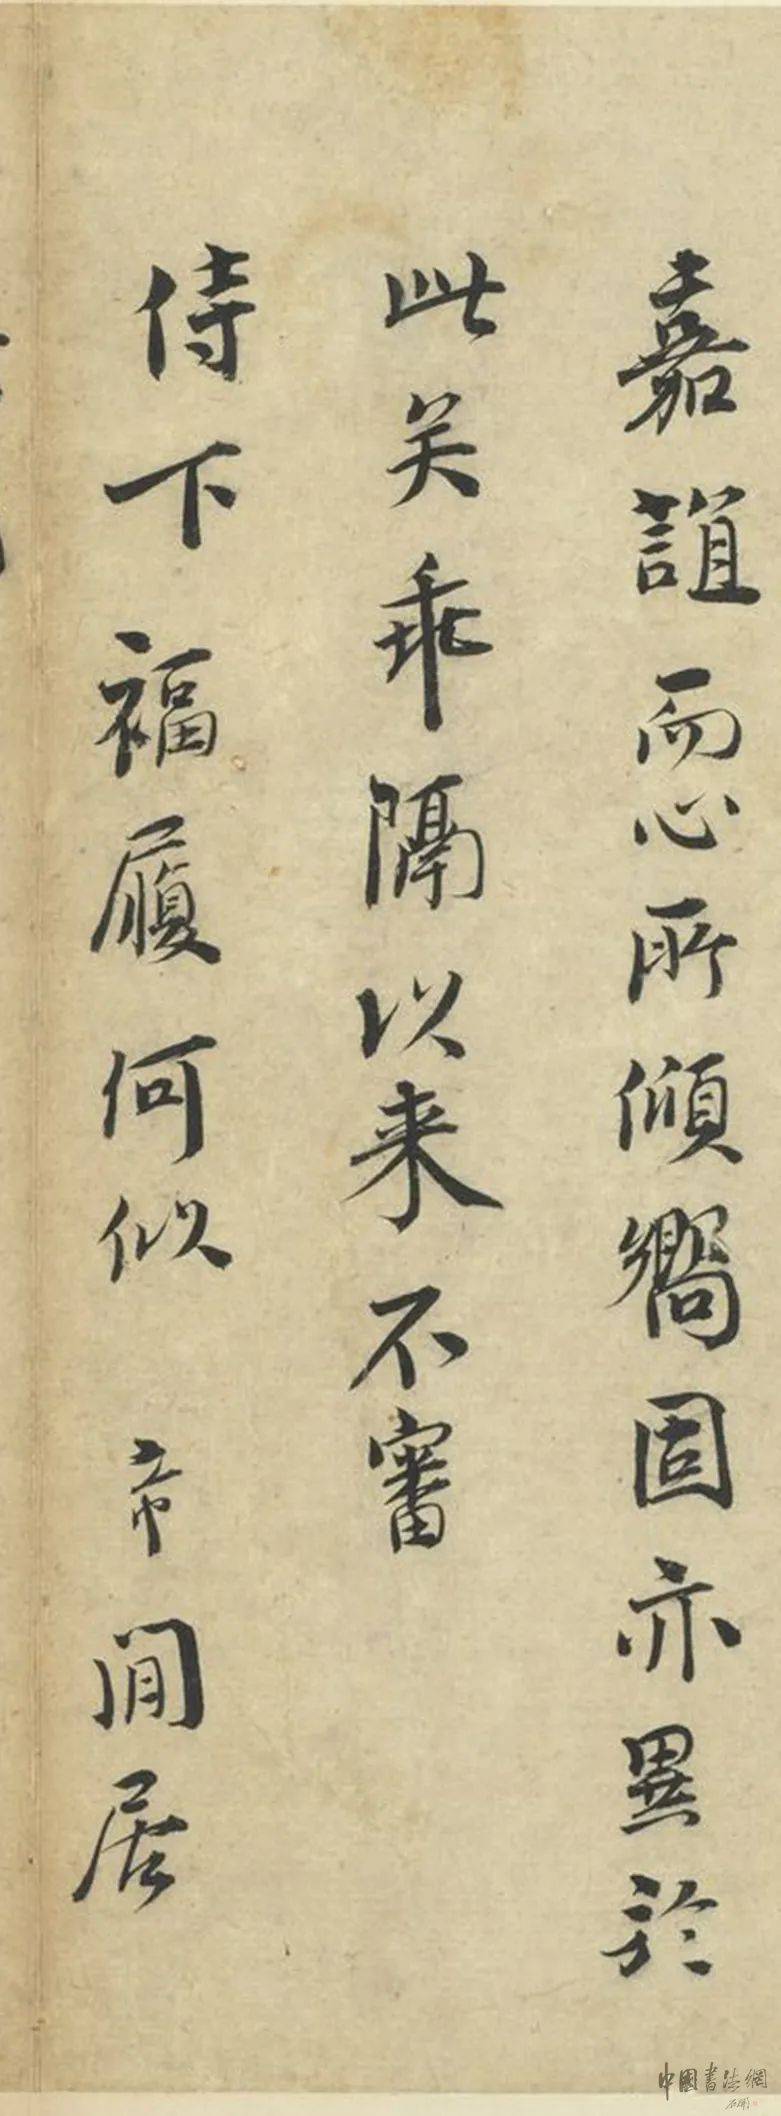 嘉誼而心所傾嚮固亦異於
此矣乖隔以来不審
侍下福履何似 帝閒居
中國書法網